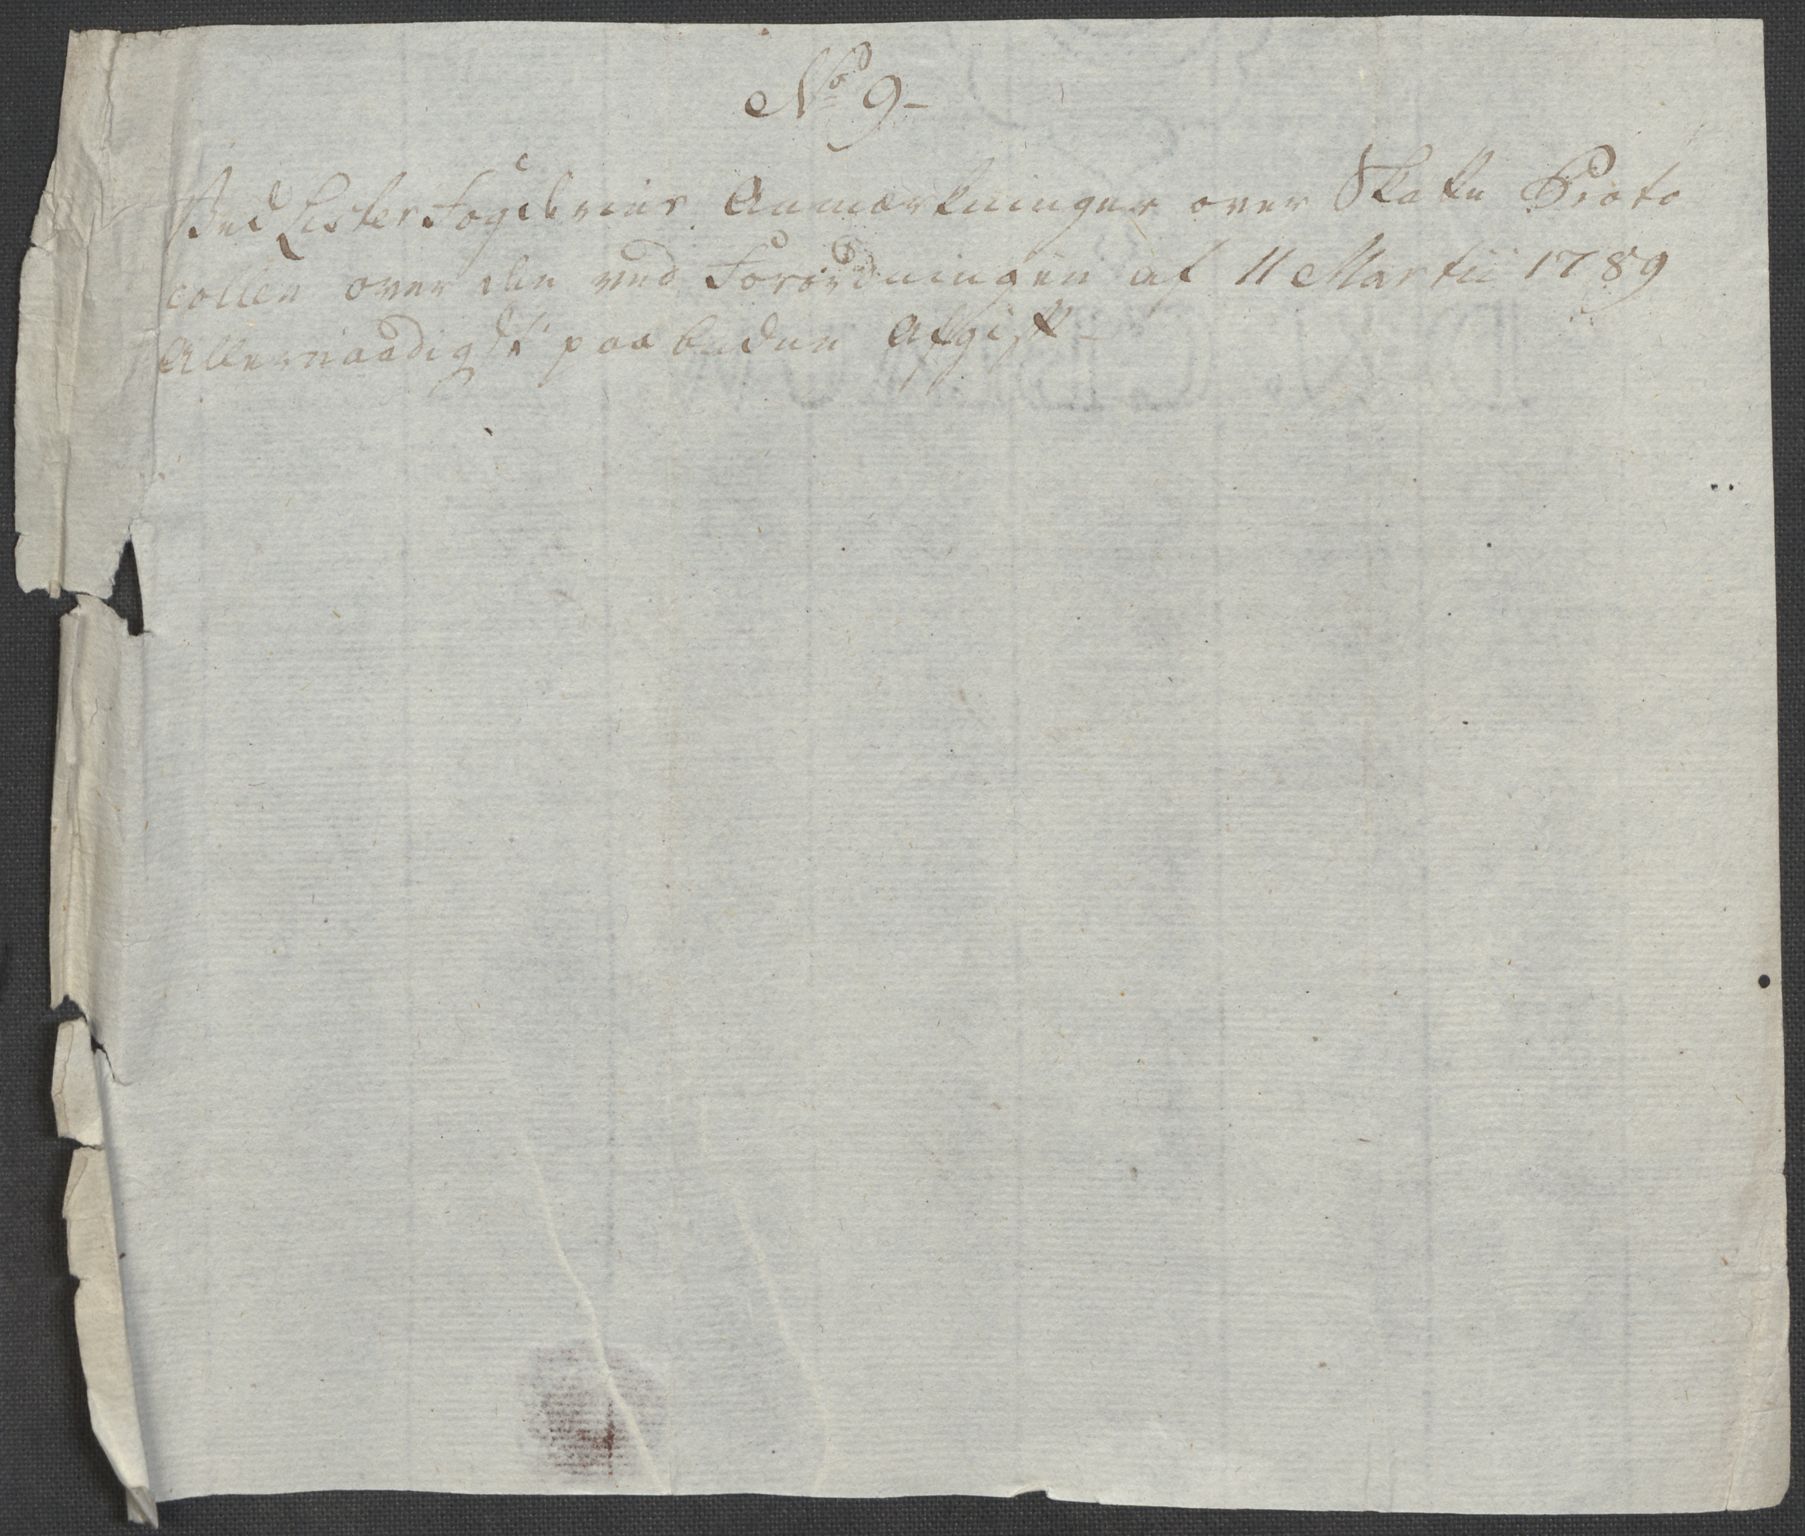 No 9-
Ved Lister Fogderies Anmærkninger over Skatte Proto
collen over den ved Forordningen af 11 Martii 1789
Allernaadigst paabudne Afgift-